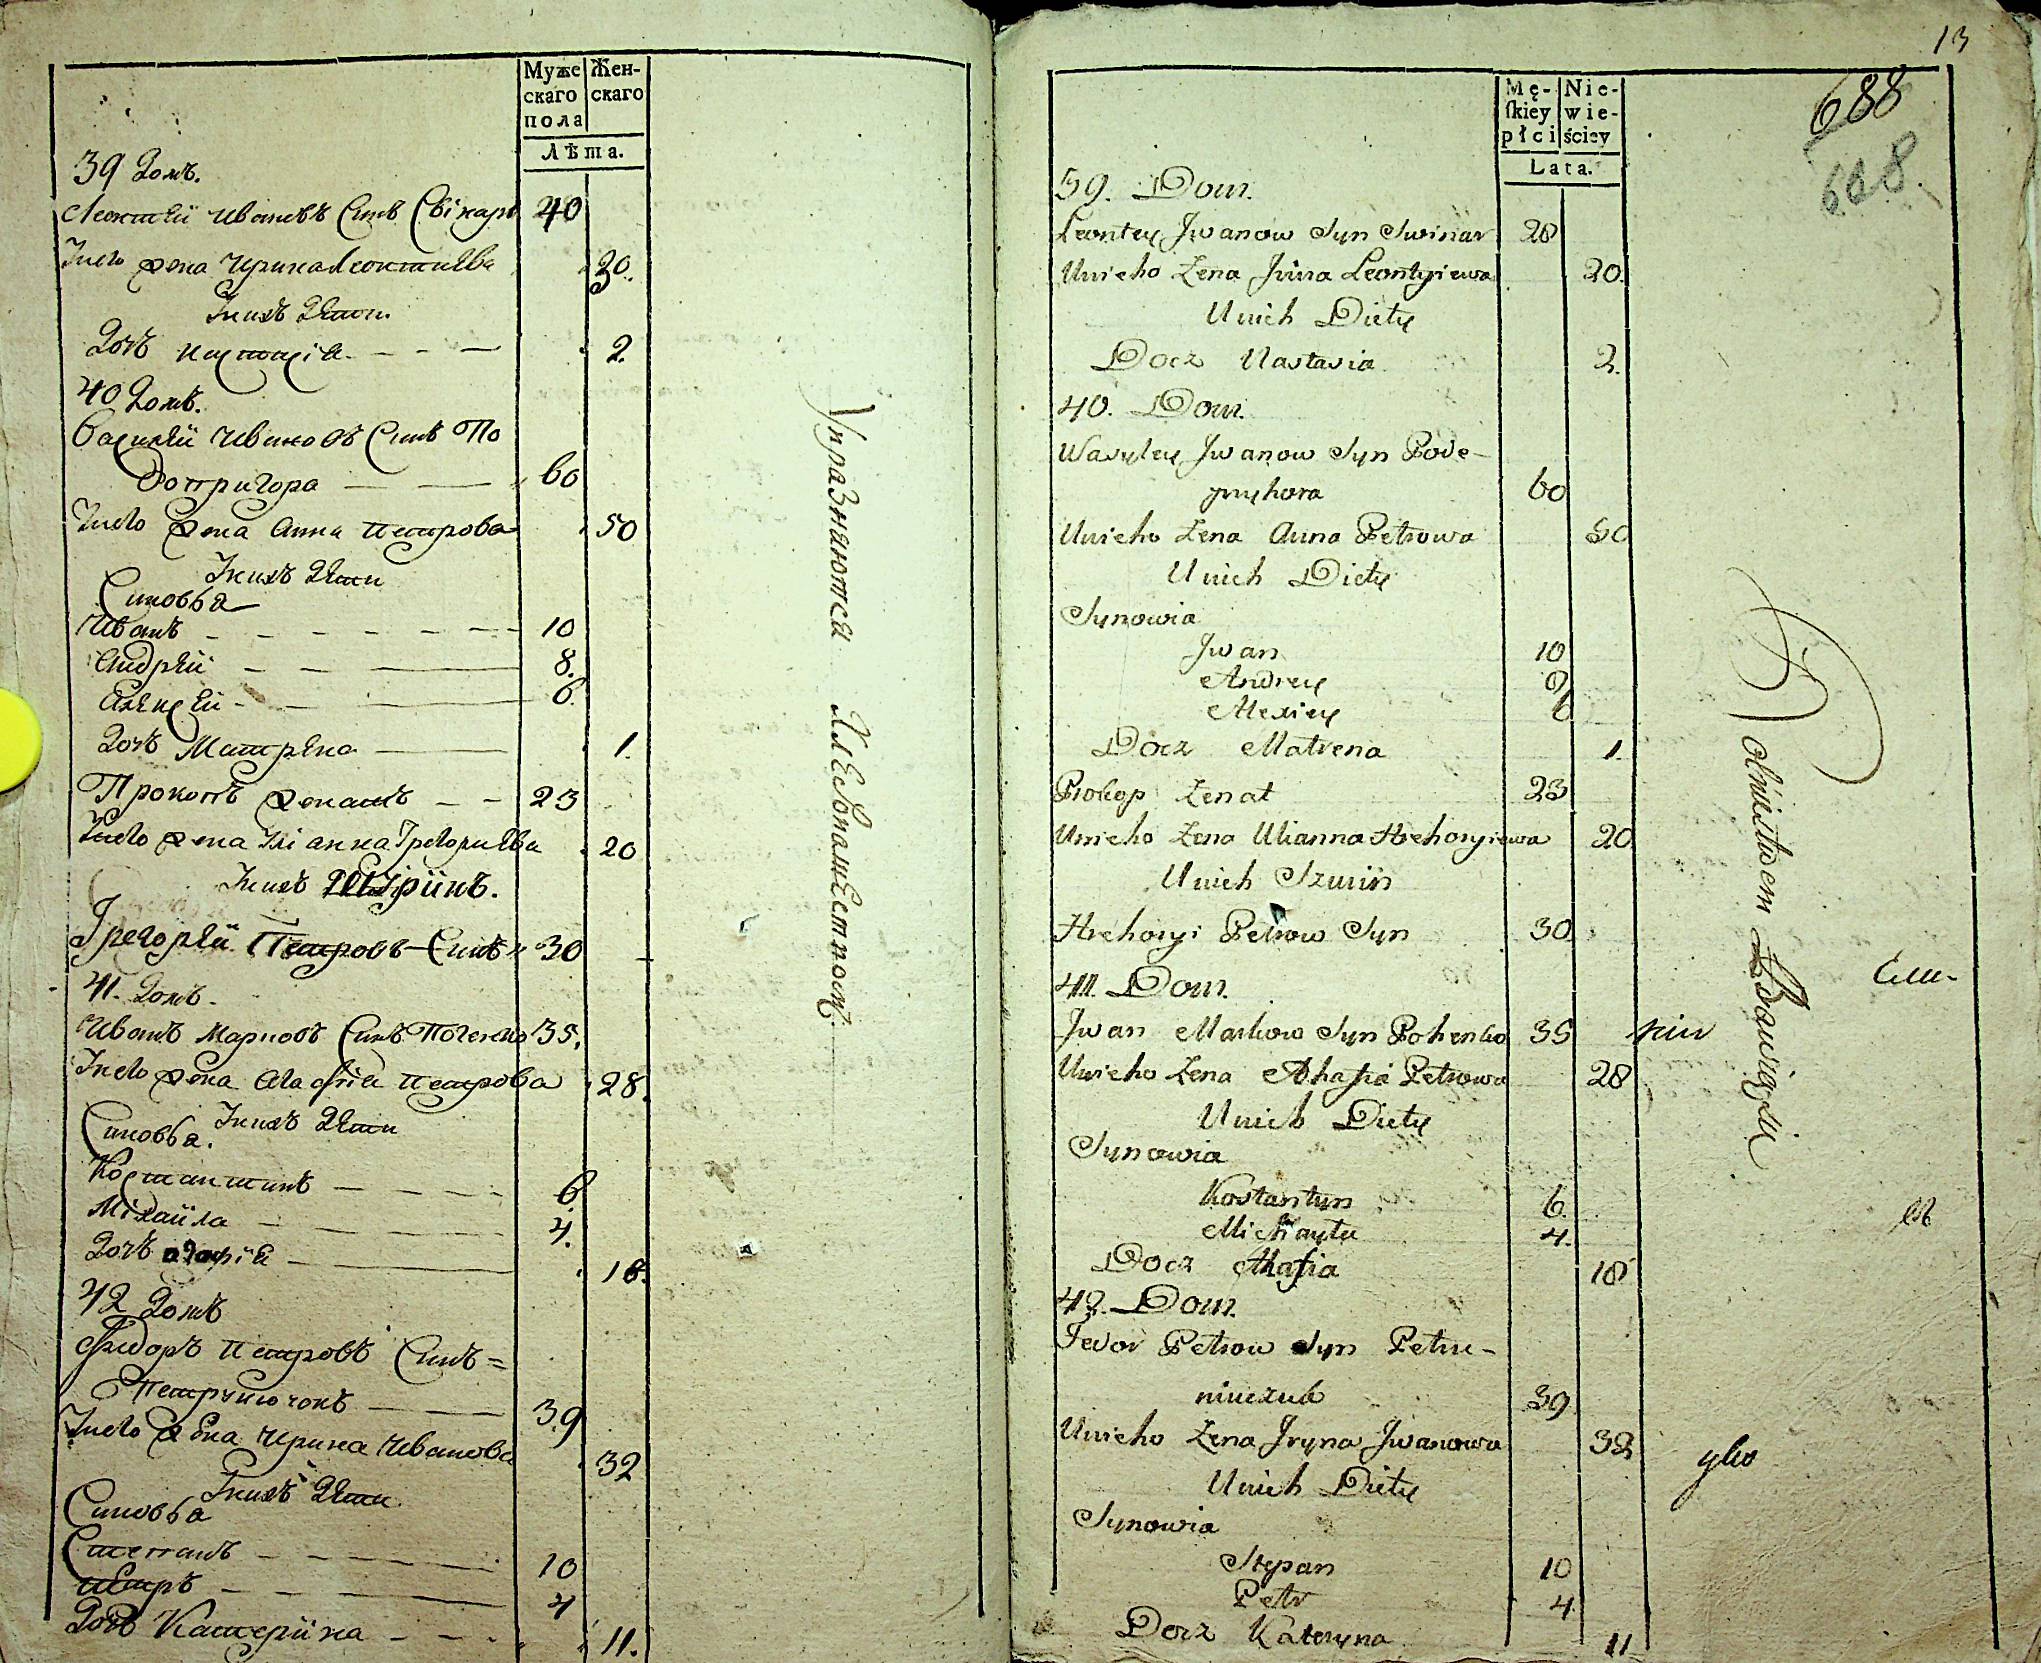 Муже
скаго
пола
Жен-
скаго
Лѣта.
39 Домъ.
Леонтѣй Ивановъ Синъ Свѣнаръ 40
Унего Жена Ирина Леонтиѣва 20.
Унихъ Дѣти.
Дочъ Настасія 2.
40 Домъ.
Василѣй Ивановъ Синъ По
допригора 60
Унего Жена Анна Петрова 50
Унихъ Дѣти
Синовья
Иванъ 10
Андрѣй 8.
Алексѣй 6.
Дочъ Матрѣна 1.
Прокопъ Женатъ 23
Унего Жена Улianна Грегориѣва 20
Унихъ
Грегорѣй Петровъ Синъ 30
41. Домъ.
Иванъ Марковъ Синъ Погенко 35.
Унего Жена Агафія Петрова 28.
Унихъ Дѣти
Синовья.
Костантинъ 6.
Міхайла 4.
Дочъ 18.
42 Домъ
Фидоръ Петровъ Синъ =
Петрунючокъ 39
Унего Жена Ирина Иванова 32
Унихъ Дѣти
Синовья
Степанъ 10
Пѣтръ 4
Дочъ Катерійна 11.
Упразняются Хлѣбопашествомъ.
13
688
608.
Mę-
ſkiey
płci
Nie-
wie-
ściey
Lata.
39. Dom.
Leontey Jwanow Syn Swinar 28
Unieho Żena Jrina Leontyiewa 20.
Unich Diety
Docz Nastasia 2.
40. Dom.
Wasyley Jwanow Syn Pode-
pryhora 60
Unieho Żena Anna Petrowa 50
Unich Diety
Synowia
Jwan 10
Andrey 8
Alexiey 6
Docz Matrena 1.
Prokop Żenat 23
Unieho Żena Ulianna Hrehoryiewa 20
Unich Szuryn
Hrehoryi Petrow Syn 30.
41. Dom.
Jwan Markow Syn Pohenko 35
Unieho Żena Ahafia Petrowa 28
Unich Diety
Synowia
Kostantyn 6.
Michayła 4.
Docz Ahafia 18
42. Dom.
Fedor Petrow Syn Petru-
niuczuk 39
Unieho Żena Jryna Jwanowa 32
Unich Diety
Synowia
Stepan 10
Petr 4
Docz Kateryna 11
Rolnictwem Bawią się